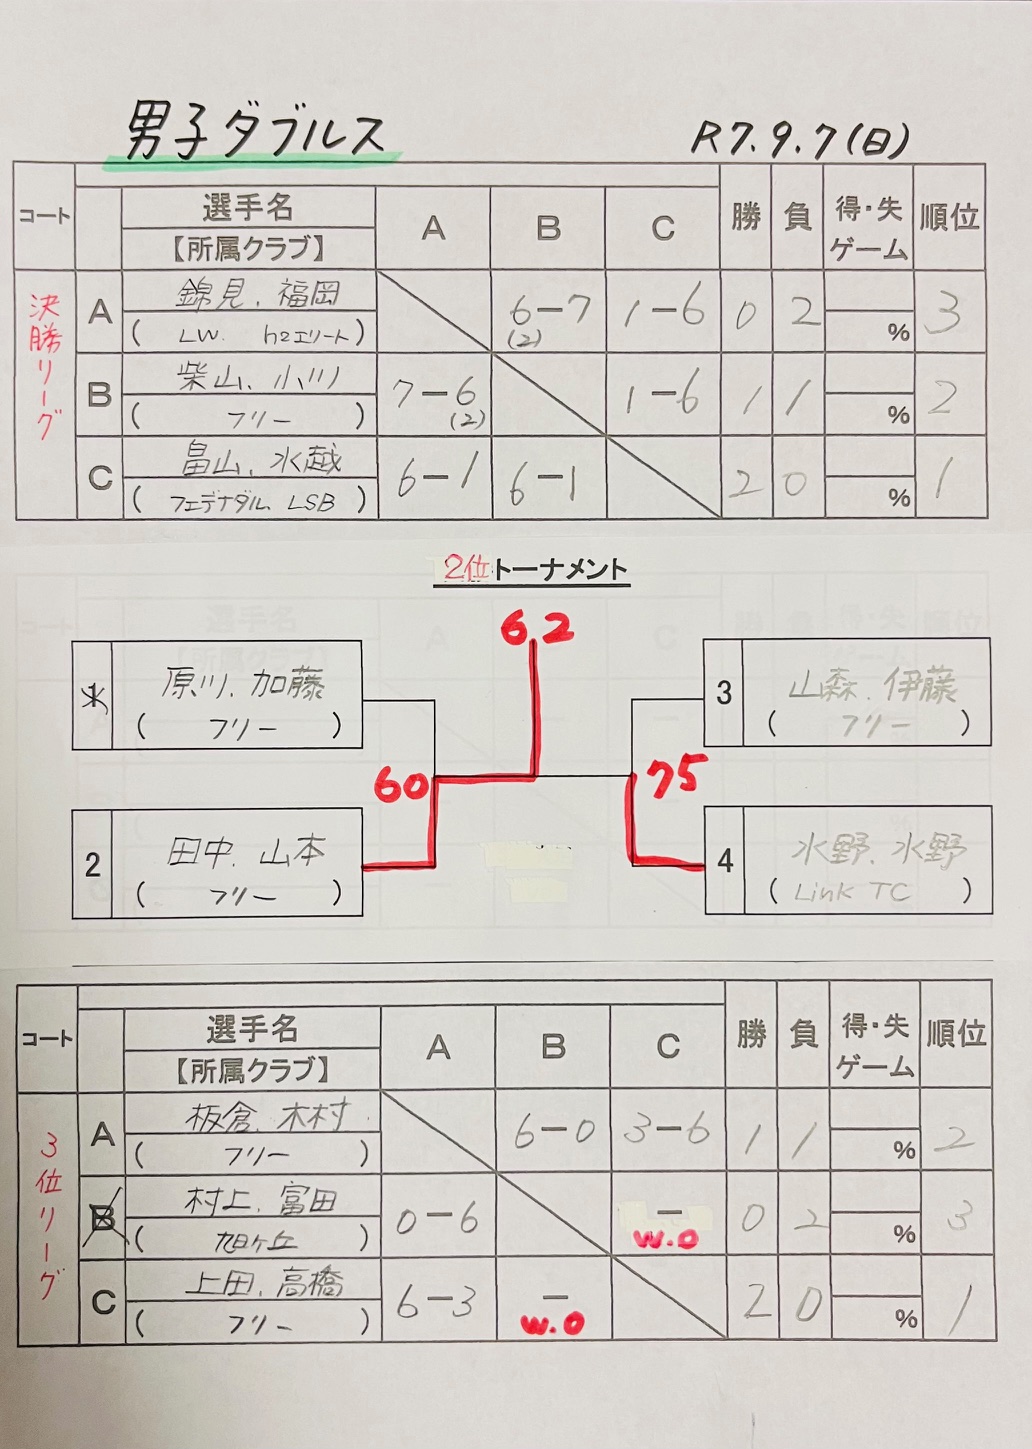 男子ダブルス R7.9.7(日)
コート 選手名 A B C 勝 負 得・失 順位
【所属クラブ】 ゲーム
決勝リーグ
A 錦見、福岡 6-7 1-6 0 2 3
( LW. h2エリート ) (2) %
B 柴山、小川 7-6 1-6 1 1 2
( フリー ) (2) %
C 畠山、水越 6-1 6-1 2 0 1
( フェデナダル LSB ) %
2位トーナメント
62
1 原川、加藤 3 山森、伊藤
( フリー ) ( フリー )
60 75
2 田中、山本 4 水野、水野
( フリー ) ( Link TC )
コート 選手名 A B C 勝 負 得・失 順位
【所属クラブ】 ゲーム
3位リーグ
A 板倉、木村 6-0 3-6 1 1 2
( フリー ) %
B 村上、富田 0-6 - 0 2 3
( 旭ヶ丘 ) W.O %
C 上田、高橋 6-3 - 2 0 1
( フリー ) W.O %